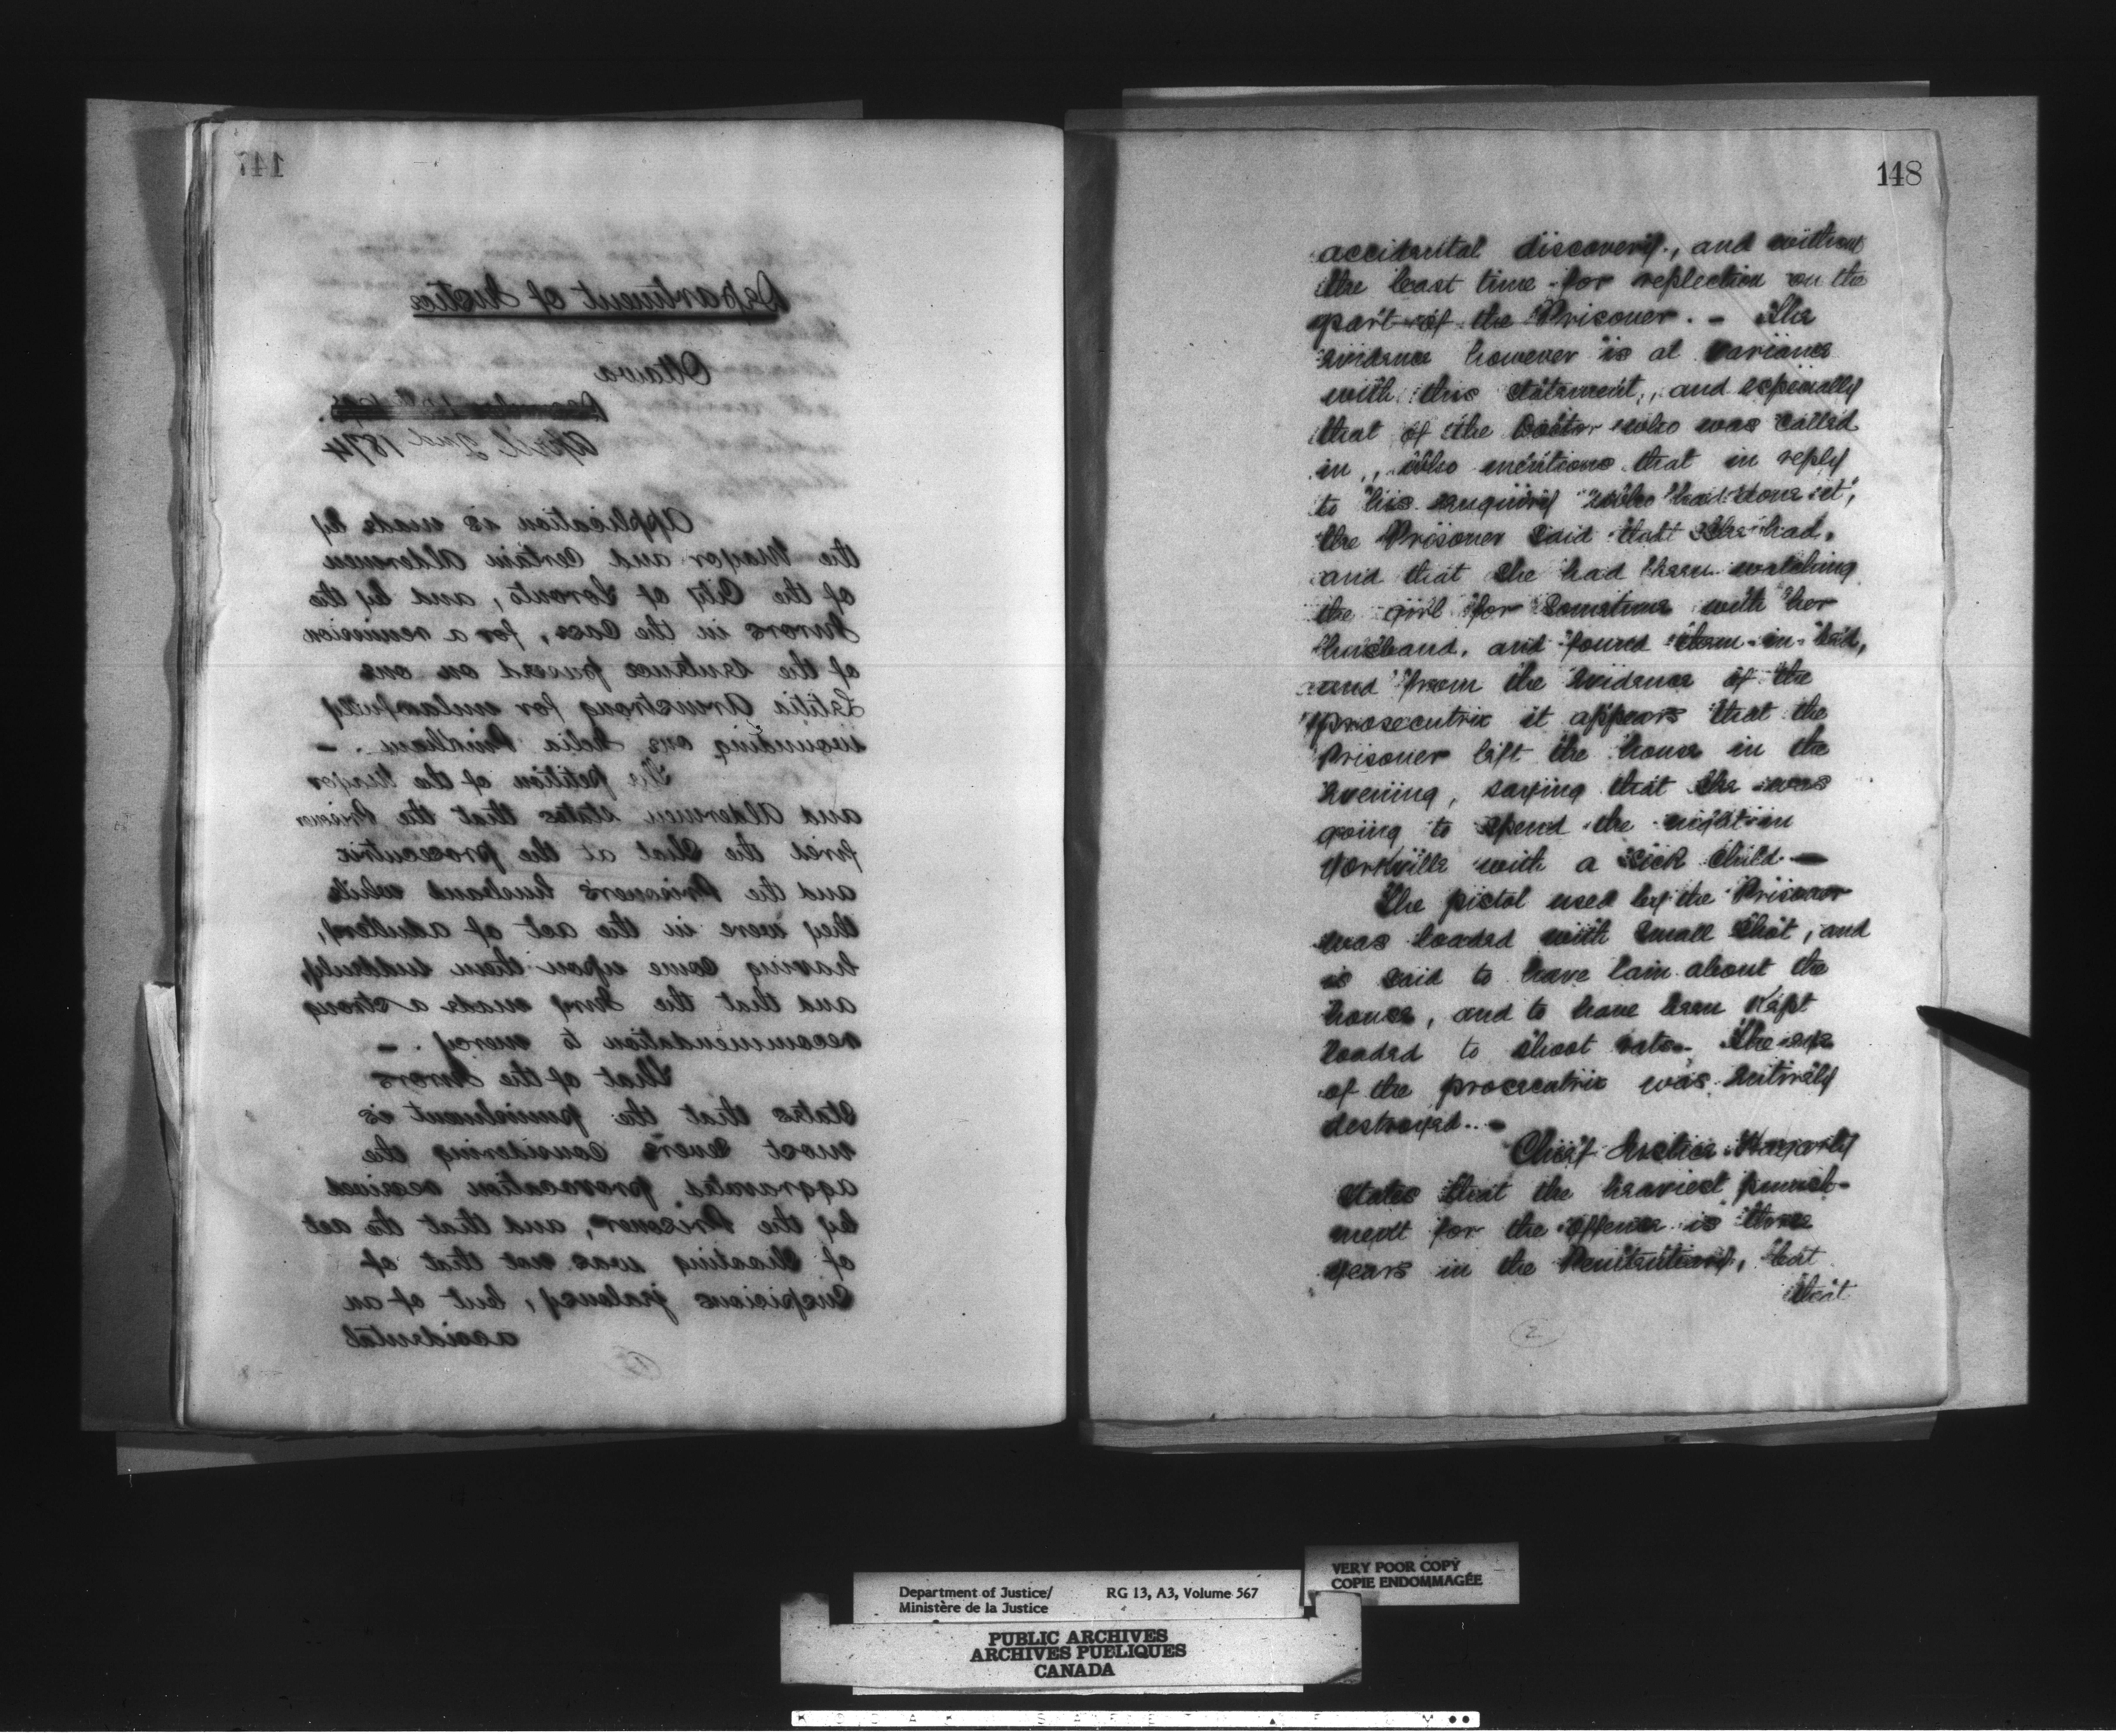 147
Department of Justice
Ottawa
April 2nd 1874
Application is made by
the Mayor and certain Aldermen
of the City of Toronto, and by the
Jurors in the Case, for a remission
of the sentence passed on one
Letitia Armstrong for unlawfully
wounding one Delia . –
The petition of the Mayor
and Aldermen states that the Prisoner
fired the shot at the prosecutrix
and the Prisoner's husband while
they were in the act of adultery,
having come upon them suddenly,
and that the Jury made a strong
recommendation to mercy. –
That of the Jurors
states that the punishment is
most severe considering the
aggravated provocation received
by the Prisoner, and that the act
of shooting was not that of
Suspicious jealousy, but of an
accidental
148
accidental discovery, and without
the least time for reflection on the
part of the Prisoner. – The
evidence however is at variance
with this statement, and especially
that of the Doctor who was called
in, who mentions that in reply
to his enquiry "who had done it",
the Prisoner said that she had,
and that she had been watching
the girl for sometime with her
husband, and found them in bed,
and from the evidence of the
prosecutrix it appears that the
Prisoner left the house in the
evening, saying that she was
going to spend the night in
Yorkville with a sick child –
The pistol used by the Prisoner
was loaded with small shot, and
is said to have lain about the
house, and to have been kept
loaded to shoot rats. The eye
of the prosecutrix was entirely
destroyed. –
Chief Justice Hagarty
states that the heaviest punish-
ment for the offence is three
years in the Penitentiary, but
that
2
Department of Justice/
Ministère de la Justice
RG 13, A3, Volume 567
VERY POOR COPY
COPIE ENDOMMAGÉE
PUBLIC ARCHIVES
ARCHIVES PUBLIQUES
CANADA